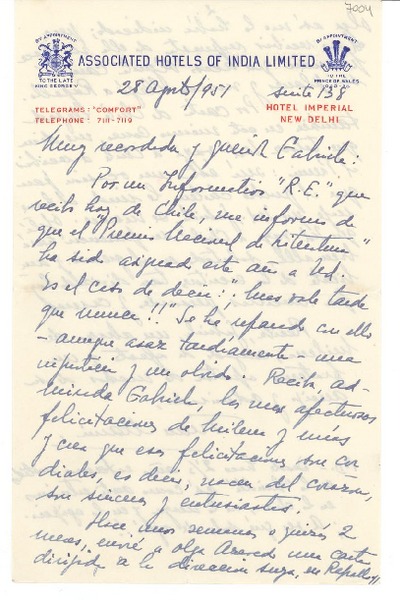 7004
BY APPOINTMENT
TO THE LATE
KING GEORGE V
ASSOCIATED HOTELS OF INDIA LIMITED
BY APPOINTMENT
TO THE
PRINCE OF WALES
28 Agosto/951 suite 138
TELEGRAMS: "COMFORT"
TELEPHONE: 7111-7119
HOTEL IMPERIAL
NEW-DELHI
Muy recordada y querida Gabriela:
Por un Informativo "R.E." que
recibo hoy de Chile, me informo de
que el "Premio Nacional de Literatura"
ha sido asignado este año a Ud.
Es el caso de decir: "¡mas vale tarde
que nunca!!" Se ha reparado con ello
- aunque asaz tardíamente - una
injusticia y un olvido. Reciba, ad-
mirada Gabriela, las mas afectuosas
felicitaciones de y mías
y crea que esas felicitaciones son cor
diales, es decir, nacen del corazón,
son sinceras y entusiastas.
Hace unas semanas o quizás 2
meses, envié a Olga Acevedo una carta
dirijida a la direccion suya, en Rapallo